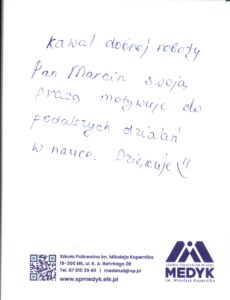 Kawał dobrej roboty
Pan Marcin swoją
pracą motywuje do
podalszych działań
w nauce. Dziękuję!!
Szkoła Policealna im. Mikołaja Kopernika
19-300 Ełk, ul. K. A. Bahrkego 2B
Tel. 87 610 39 40 | medstud@wp.pl
www.spmedyk.elk.pl
MEDYK
im. Mikołaja Kopernika